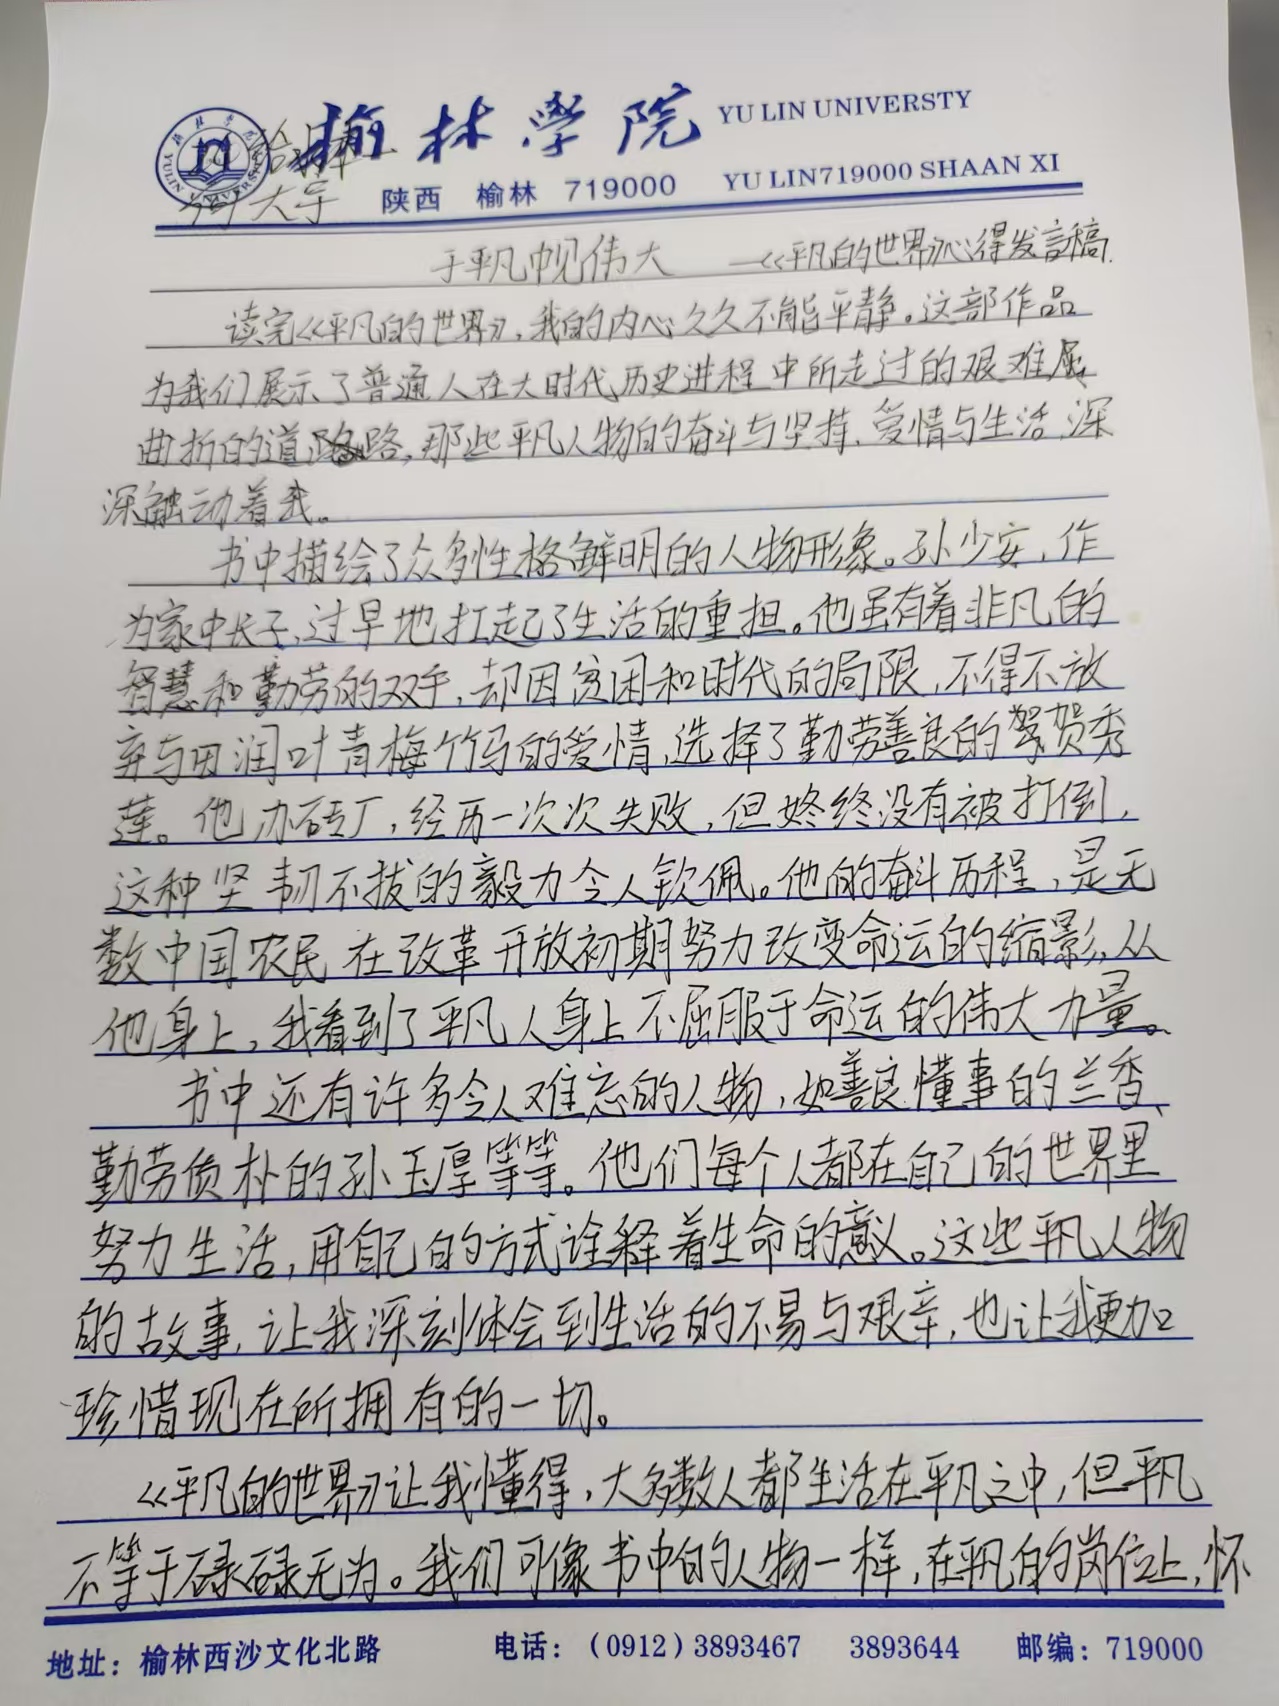 榆林学院 YU LIN UNIVERSTY
陕西 榆林 719000 YU LIN719000 SHAAN XI
大学
于平凡中见伟大 —《平凡的世界》心得发言稿.
读完《平凡的世界》,我的内心久久不能平静。这部作品
为我们展示了普通人在大时代历史进程中所走过的艰难屈
曲折的道路,那些平凡人物的奋斗与坚持、爱情与生活,深
深触动着我。
书中描绘了众多性格鲜明的人物形象。孙少安,作
为家中长子,过早地扛起了生活的重担。他虽有着非凡的
智慧和勤劳的双手,却因贫困和时代的局限,不得不放
弃与田润叶青梅竹马的爱情,选择了勤劳善良的贺秀
莲。他办砖厂,经历一次次失败,但始终没有被打倒,
这种坚韧不拔的毅力令人钦佩。他的奋斗历程,是无
数中国农民在改革开放初期努力改变命运的缩影,从
他身上,我看到了平凡人身上不屈服于命运的伟大力量。
书中还有许多令人难忘的人物,如善良懂事的兰香、
勤劳质朴的孙玉厚等等。他们每个人都在自己的世界里
努力生活,用自己的方式诠释着生命的意义。这些平凡人物
的故事,让我深刻体会到生活的不易与艰辛,也让我更加
珍惜现在所拥有的一切。
《平凡的世界》让我懂得,大多数人都生活在平凡之中,但平凡
不等于碌碌无为。我们可像书中的人物一样,在平凡的岗位上,怀
地址:榆林西沙文化北路 电话:(0912)3893467 3893644 邮编:719000